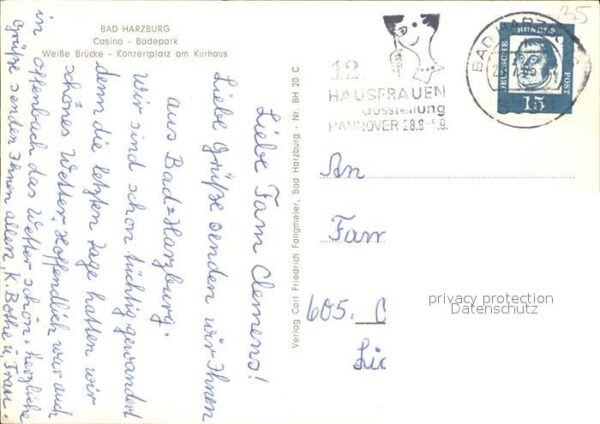 BAD HARZBURG
Casino - Badepark
Weiße Brücke - Konzertplatz am Kurhaus
Liebe Fam Clemens!
Liebe Grüße senden wir Ihnen
aus Bad=Harzburg.
Wir sind schon tüchtig gewandert
denn die letzten Tage hatten wir
schönes Wetter. Hoffendlich war auch
in Offenbach das Wetter schön. herzliche
Grüße senden Ihnen allen, K. Bothe u. Frau.
Verlag Carl Friedrich Fangmeier, Bad Harzburg - Nr. BH 20 C
12.
HAUSFRAUEN
ausstellung
HANNOVER 28.8-5.9.
BAD HARZ
DEUTSCHE BUNDES POST
15
35
An
Fam
605.
privacy protection
Datenschutz